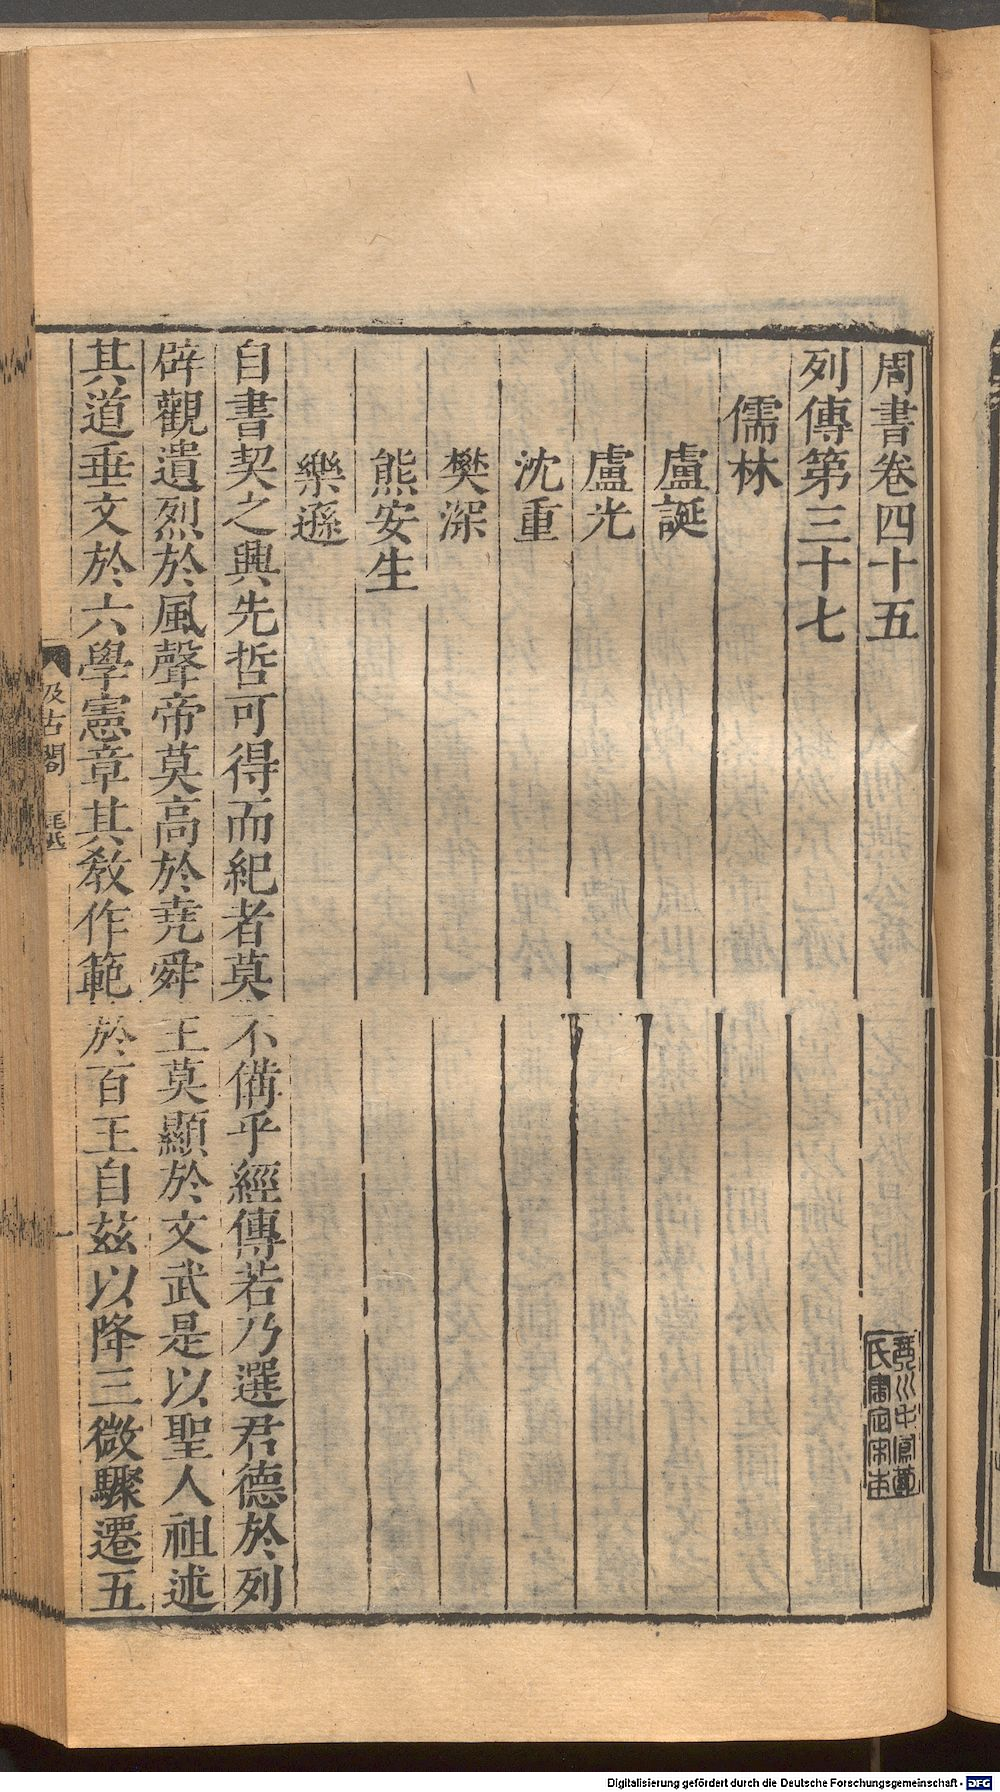 周書卷四十五
列傳第三十七
儒林
盧誕
盧光
沈重
樊深
熊安生
樂遜
自書契之興先哲可得而紀者莫不備乎經傳若乃選君德於列
辟觀遺烈於風聲帝莫高於堯舜王莫顯於文武是以聖人祖述
其道垂文於六學憲章其教作範於百王自茲以降三微驟遷五
汲古閣
毛氏
一
Digitalisierung gefördert durch die Deutsche Forschungsgemeinschaft - DFG